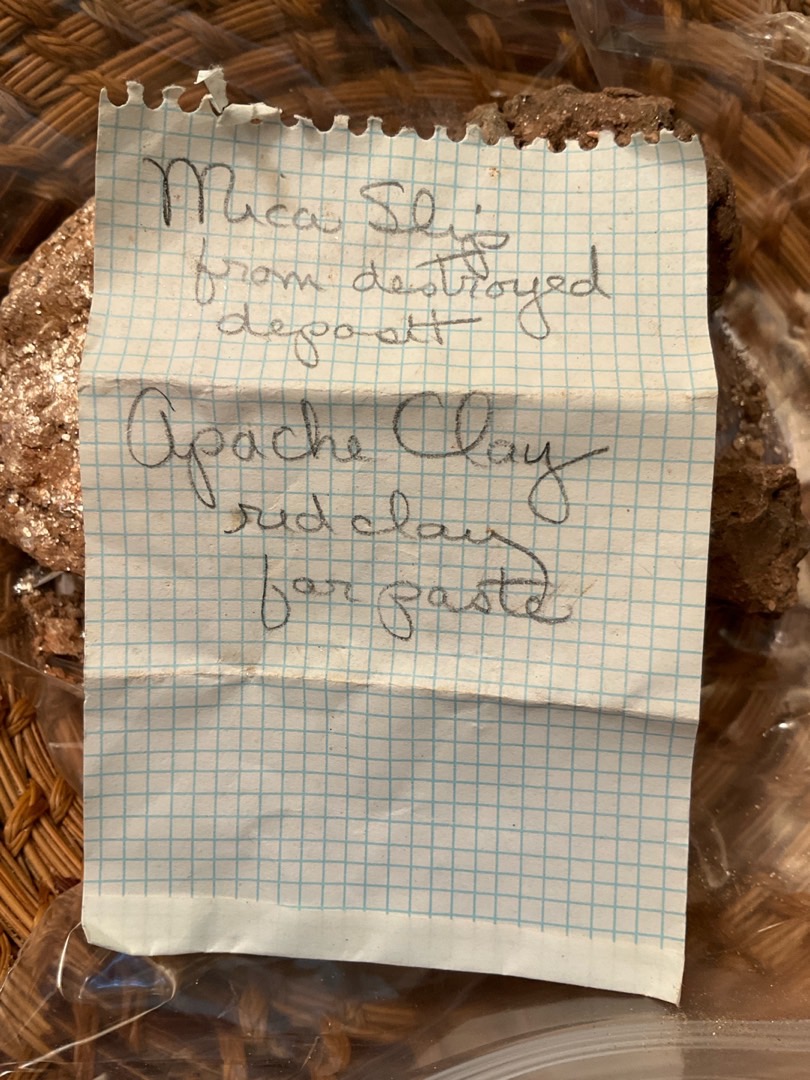 Mica Slip
from destroyed
deposit
Apache Clay
red clay
for paste